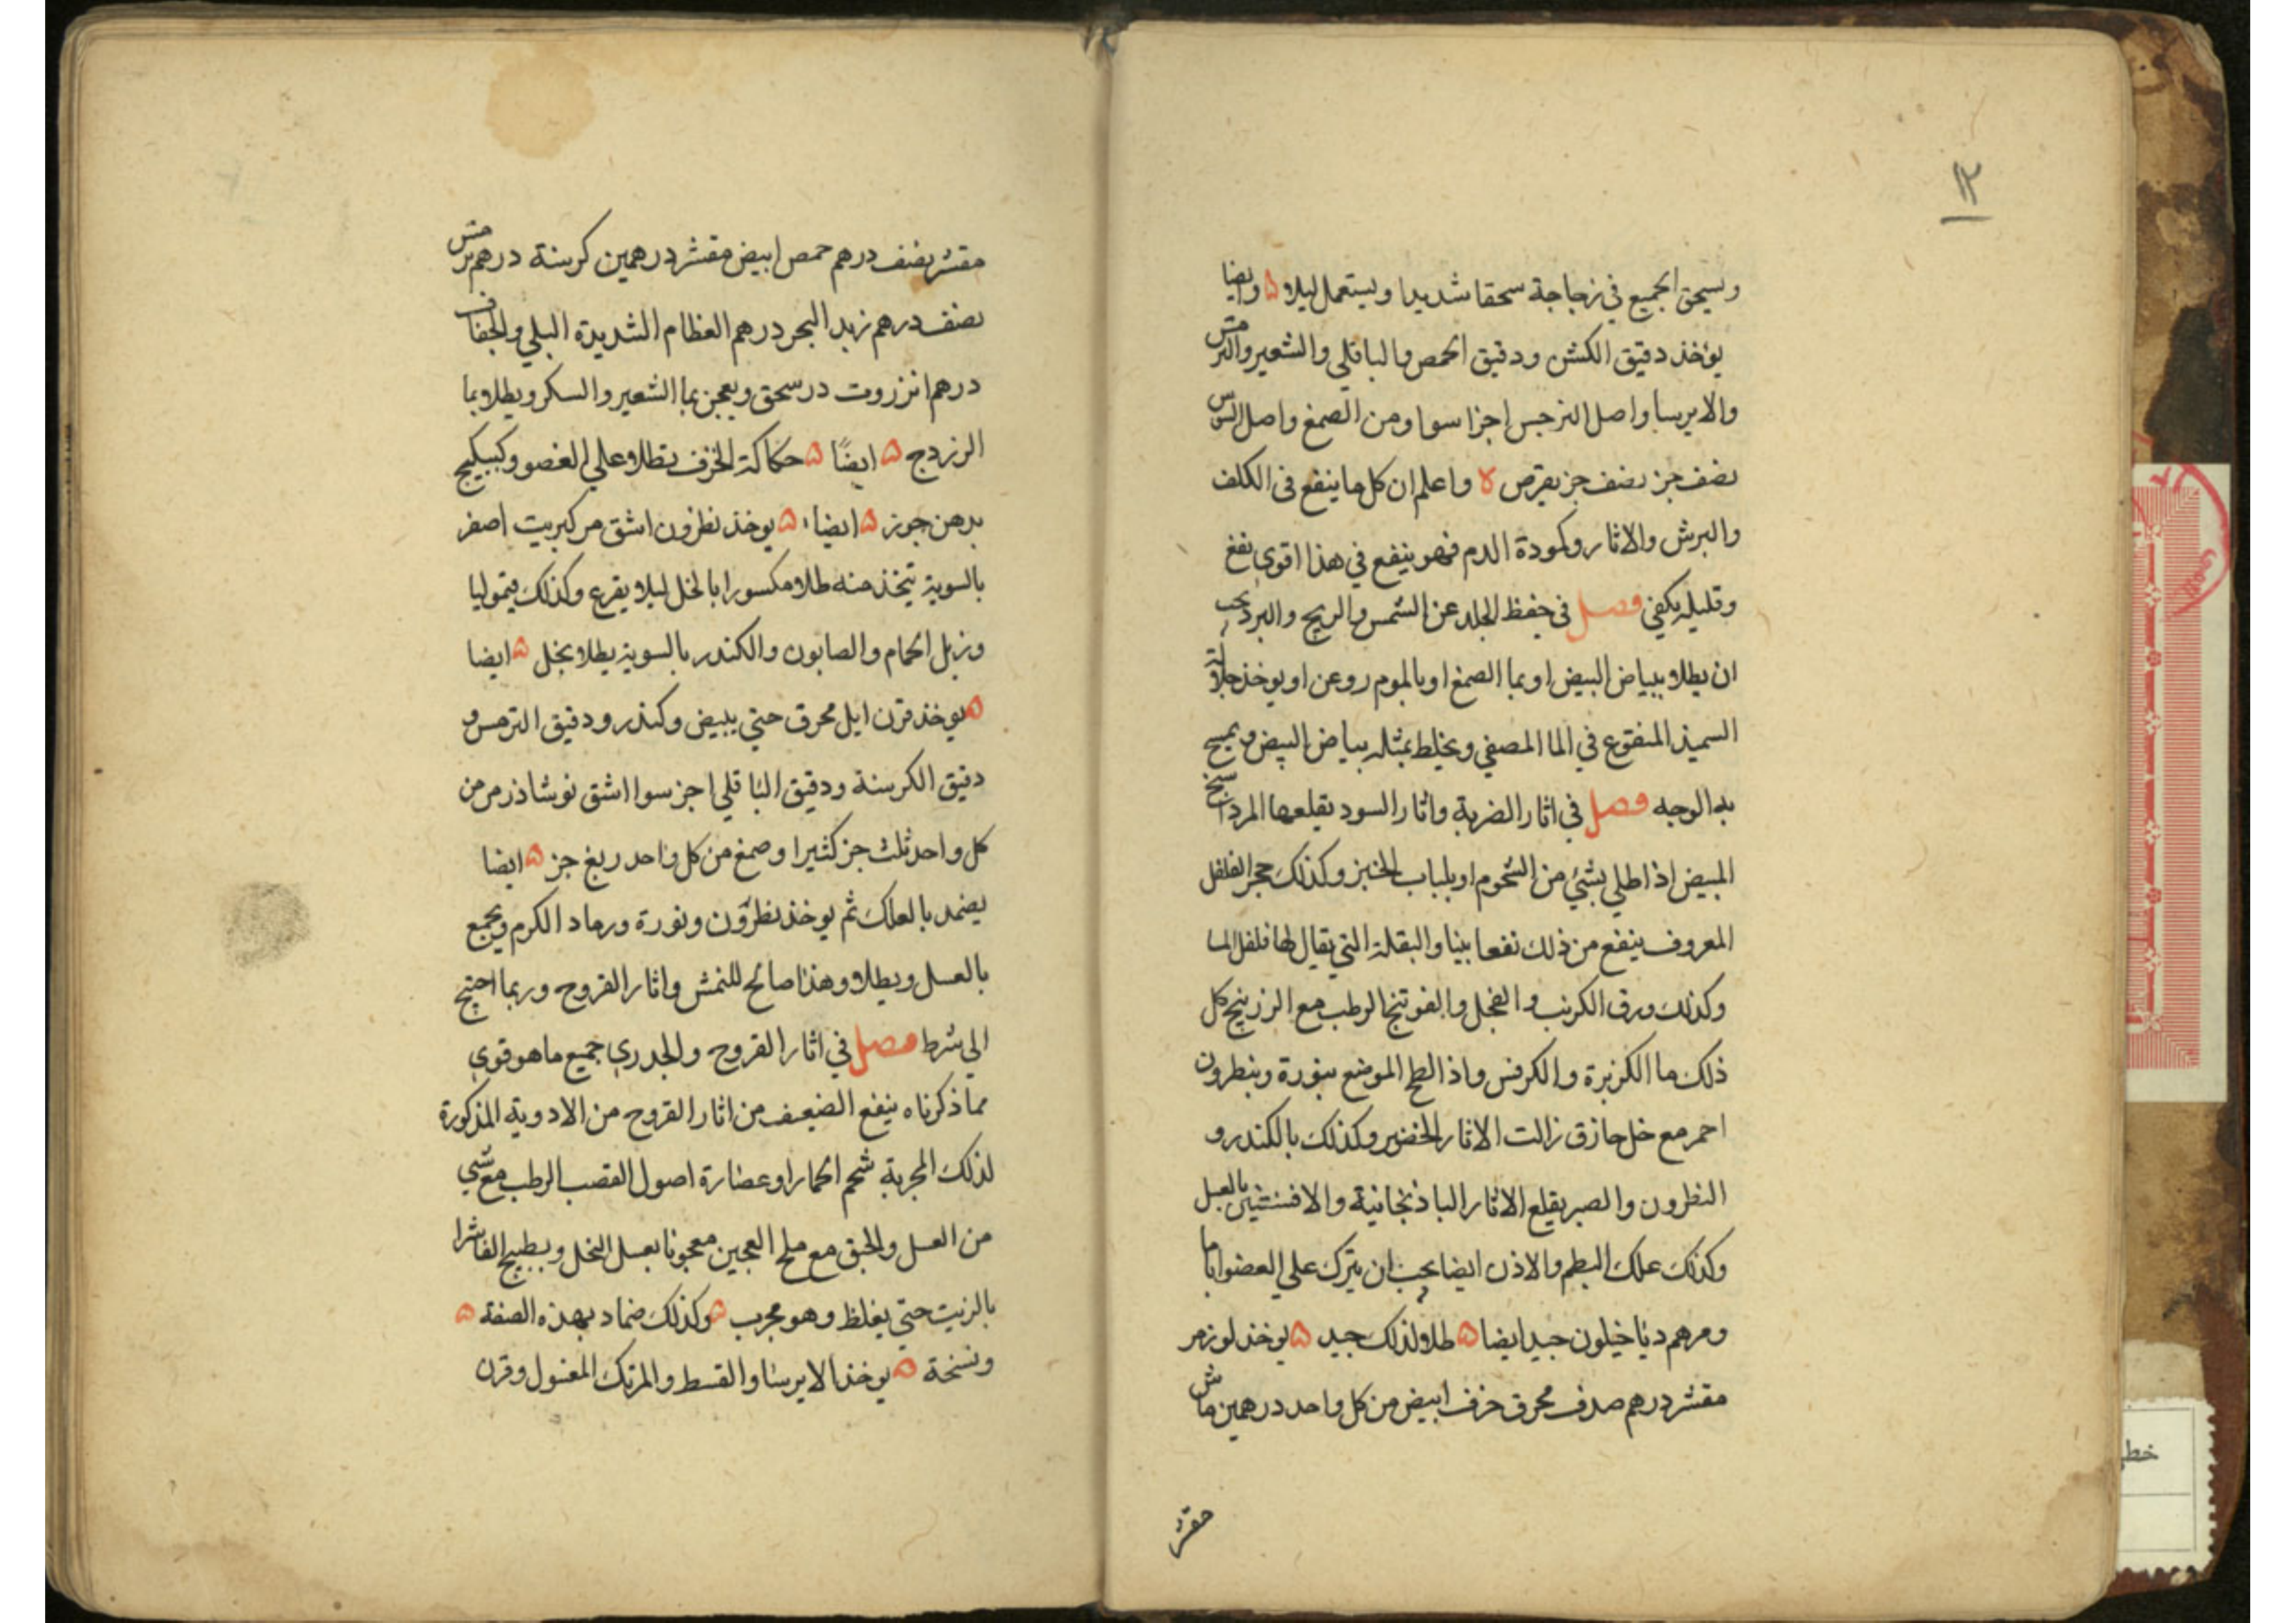 ويسحق الجميع في زجاجة سحقا شديدا ويستعمل ليلا ۵ وايضا
يؤخذ دقيق الكشن ودقيق الحمص والباقلي والشعير والترمس
والايرسا واصل النرجس اجزا سوا ومن الصمغ واصل السوس
نصف جز نصف جز يقرص ۵ واعلم ان كل ما ينفع في الكلف
والبرش والاثار وكمودة الدم فهو ينفع في هذا اقوي نفع
وقليله يكفي فصل في حفظ الجلد عن الشمس والريح والبرد يجب
ان يطلا ببياض البيض او بما الصمغ او بالموم روعن او يوخذ جلالة
السميذ المنقوع في الما المصفي ويخلط بمثله بياض البيض ويمسح
به الوجه فصل في اثار الضربة واثار السود يقلعها المرداسنج
المبيض اذا طلي بشئ من الشحوم او بلباب الخبز وكذلك حجر الفلفل
المعروف ينفع من ذلك نفعا بينا والبقلة التي يقال لها فلفل الما
وكذلك ورق الكرنب والفجل والفوتنج الرطب مع الرزنيج كل
ذلك ما الكزبرة والكرفس واذا لطخ الموضع بنورة وبنطرون
احمر مع خل حازق زالت الاثار الخضر وكذلك بالكندر و
النطرون والصبر يقلع الاثار الباذنجانية والافسنتين بالعسل
وكذلك علك البطم والاذن ايضا يجب ان يترك علي العضو اياما
ومرهم دياخيلون جيد ايضا ۵ طلا لذلك جيد ۵ يوخذ لوز مر
مقشر درهم صدف محرق خزف ابيض من كل واحد درهمين ماش
مقشر
مقشر نصف درهم حمص ابيض مقشر درهمين كرسنة درهم ترمس
نصف درهم زبد البحر درهم العظام الشديدة البلي والجفاف
درهم انزروت در سحق ويعجن بما الشعير والسكر ويطلا بما
الرزدج ۵ ايضًا ۵ حكاكة الخزف تطلا علي العضو وكبيكج
بدهن جوز ۵ ايضا ۵ يوخذ نطرون اشق مر كبريت اصفر
بالسوية يتخذ منه طلا مكسورا بالخل ليلا يقرع وكذلك قيموليا
وزبل الحمام والصابون والكندر بالسوية يطلا بخل ۵ ايضا
۵ يوخذ قرن ايل محرق حتي يبيض وكندر ودقيق الترمس و
دقيق الكرسنة ودقيق الباقلي اجز سوا اشق نوشاذر مر من
كل واحد ثلث جز كثيرا وصمغ من كل واحد ربع جز ۵ ايضا
يضمد بالعلك ثم يوخذ نطرون ونورة ورماد الكرم ويجمع
بالعسل ويطلا وهذا صالح للنمش واثار القروح وربما احتيج
الي شرط فصل في اثار القروح والجدري جميع ما هو قوي
مما ذكرناه ينفع الضعيف من اثار القروح من الادوية المذكورة
لذلك المجربة شحم الحمار او عصارة اصول القصب الرطب مع شي
من العسل والحبق مع ملح العجين معجونا بعسل النحل وبطبيخ الفاشرا
بالزيت حتي يغلظ وهو مجرب ۵ وكذلك ضماد بهذه الصفة ۵
ونسخة ۵ يوخذ الايرسا والقسط والمرتك المغسول وقرن